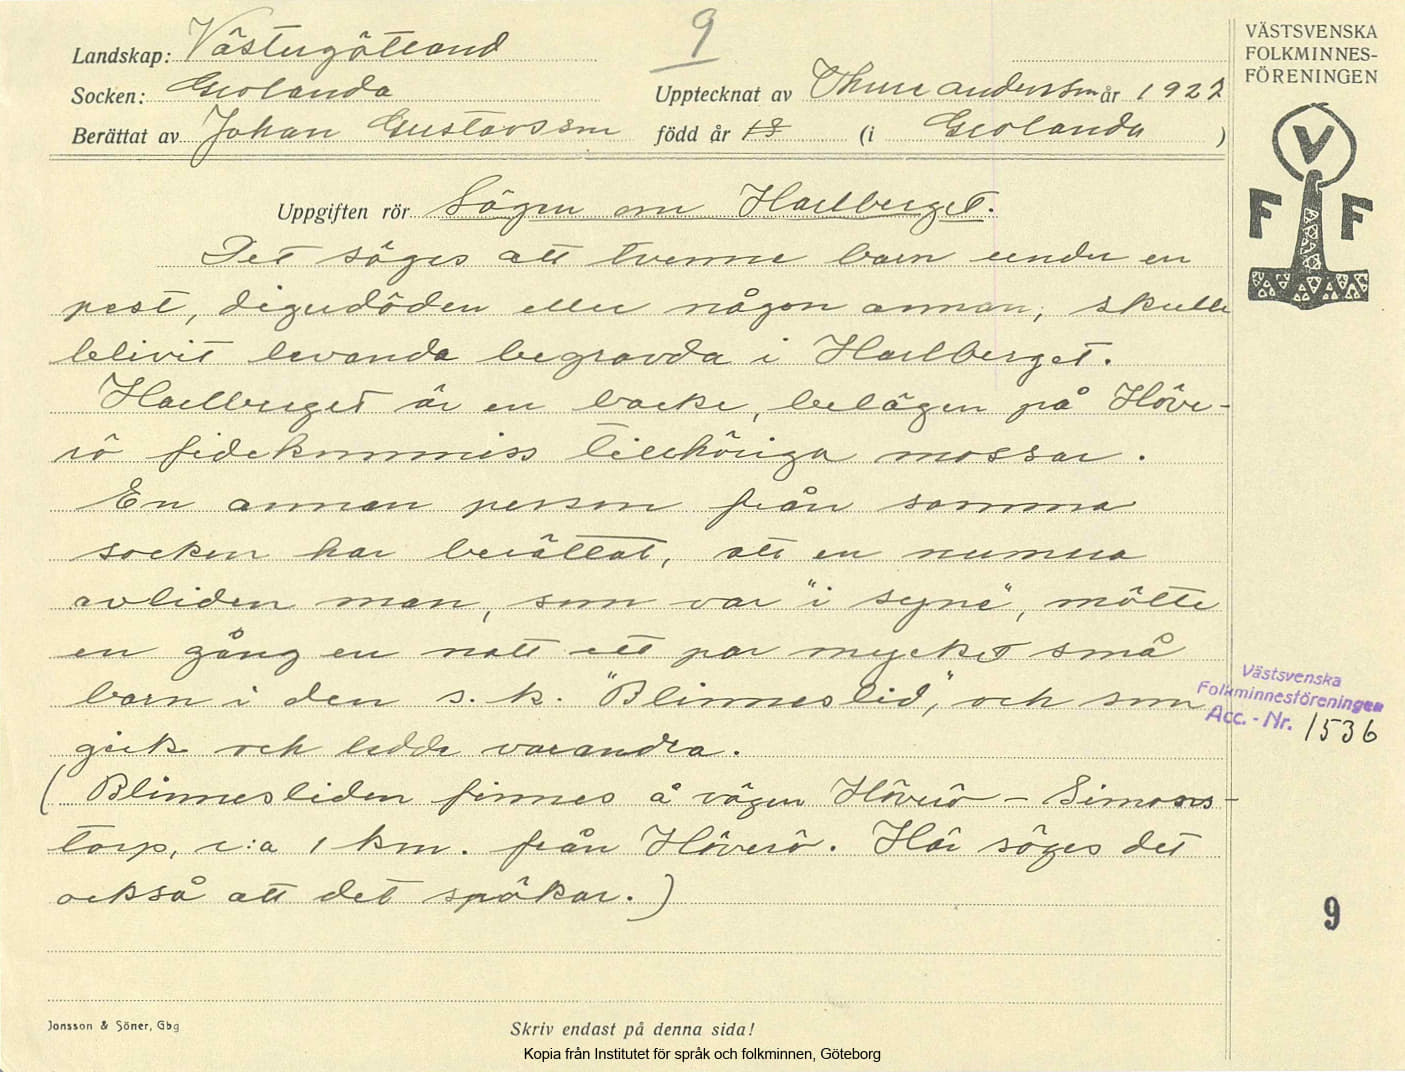 9
VÄSTSVENSKA
FOLKMINNES-
FÖRENINGEN
Landskap: Västergötland
Socken: Gerolanda
Upptecknat av Thure Andersson år 1922
Berättat av Johan Gustavsson född år 18 (i Gerolanda )
V
F F
Uppgiften rör Sägen om Harlberget.
Det säges att tvenne barn under en
pest, digerdöden eller någon annan, skulle
blivit levande begravda i Harlberget.
Harlberget är en backe, belägen på Höve-
rö fidekommiss tillhöriga mossar.
En annan person från samma
socken har berättat, att en numera
avliden man, som var "i syne", mötte
en gång en natt ett par mycket små
barn i den s. k. "Blinneslid", och som
gick och ledde varandra.
(Blinnesliden finnes å vägen Höverö - Simons-
torp, c:a 1 km. från Höverö. Här säges det
också att det spökar.)
Västsvenska
Folkminnesföreningen
Acc. - Nr. 1536
9
Jonsson & Söner, Gbg
Skriv endast på denna sida!
Kopia från Institutet för språk och folkminnen, Göteborg